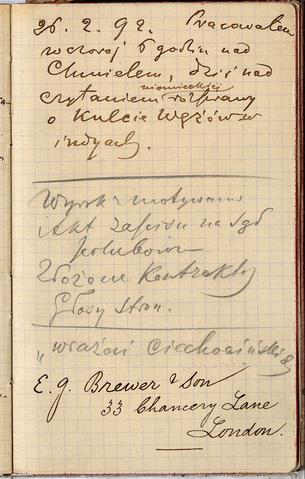 26. 2. 92. Pracowałem
wczoraj 6 godzin nad
Chmielem, dziś nad
niemieckiej
czytaniem rozprawy
o Kulcie Wężów w
indyach.
Wyrok z motywami
Akt zapisu na Sąd
polubown
Złożone Kontrakty
Głosy stron.
„wrażeń Ciechocińskich
E. G. Brewer & Son
33 Chancery Lane
London.